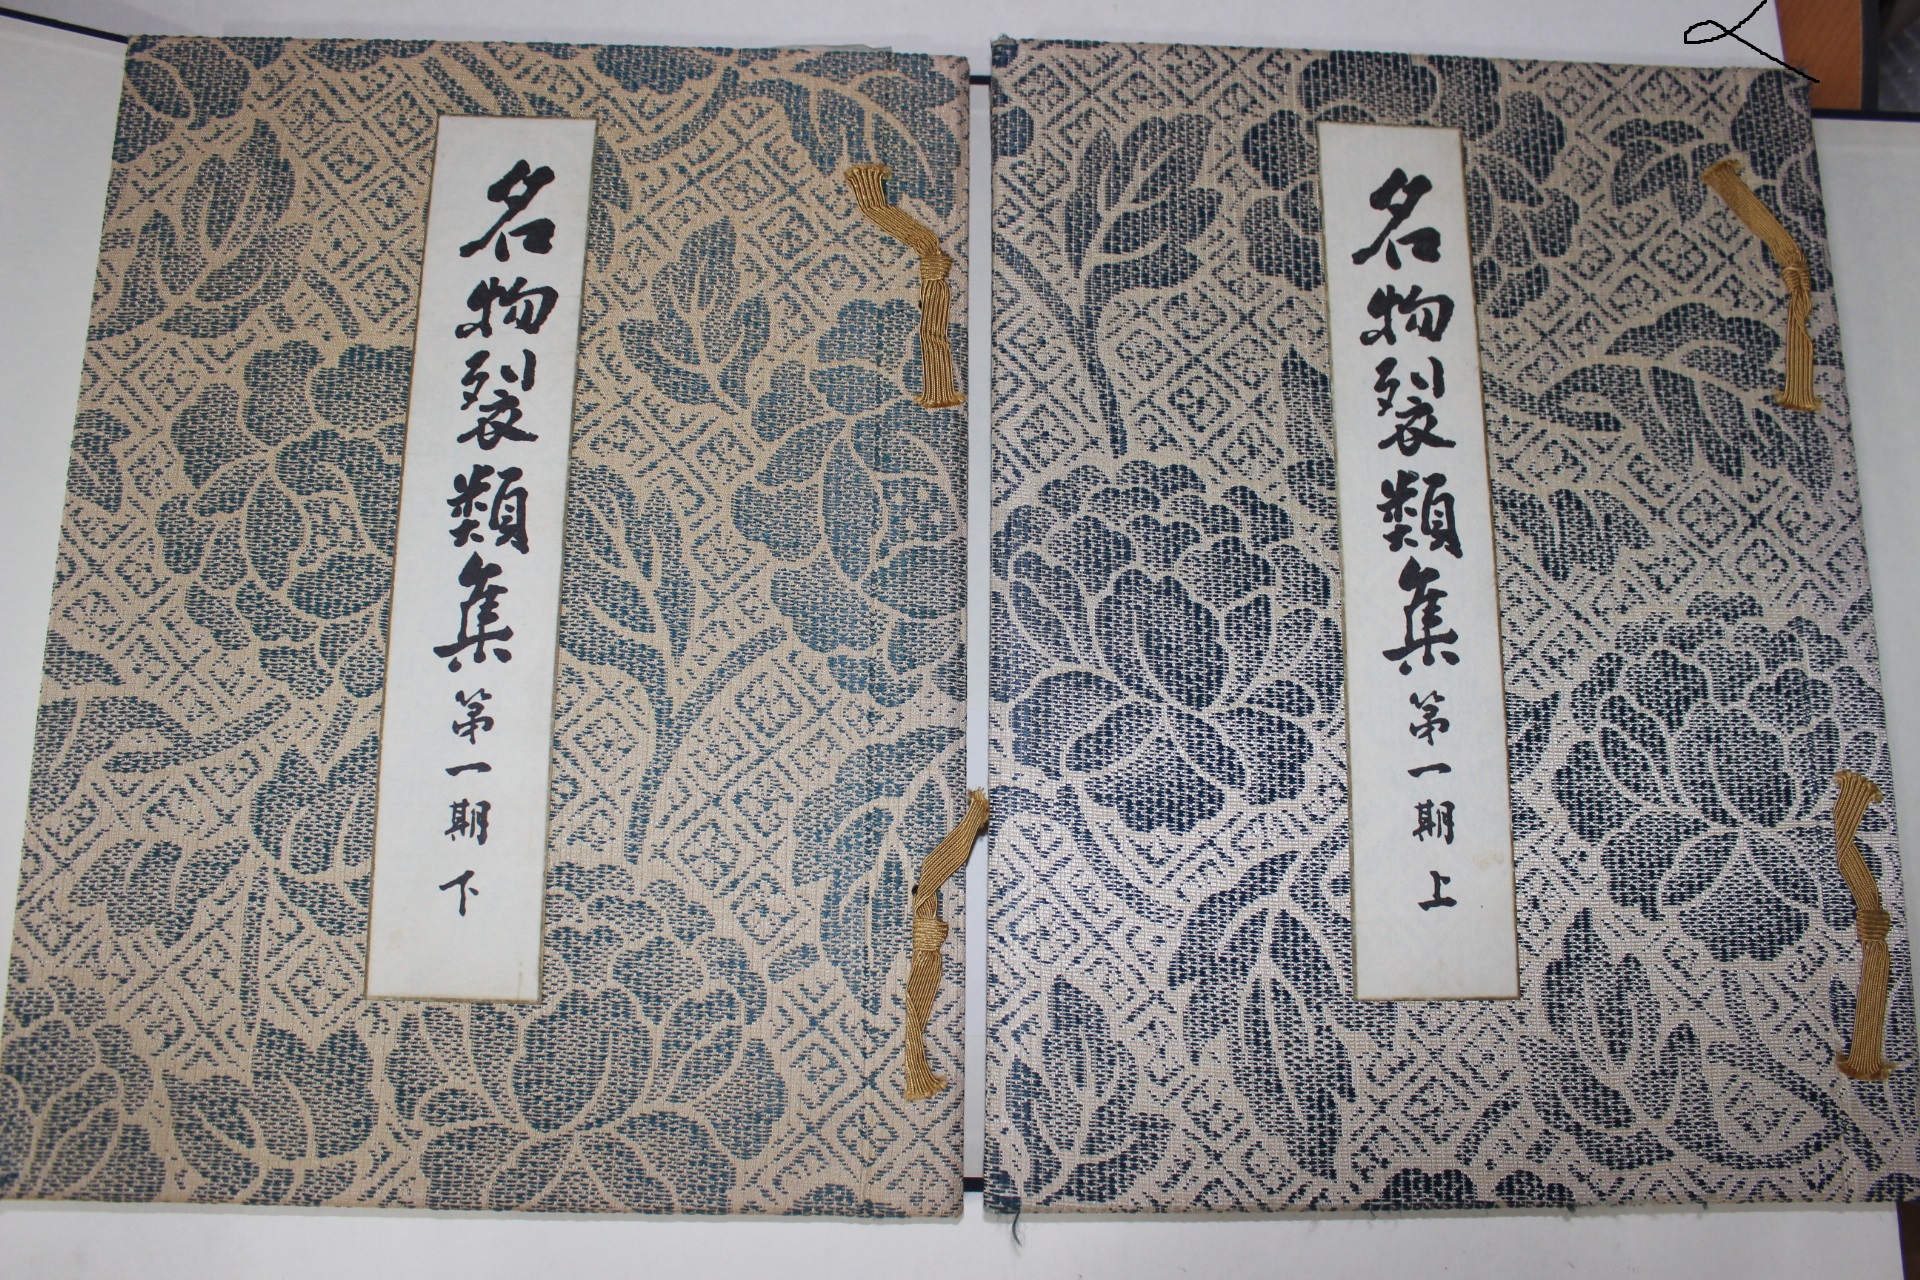 名物裂類集 第一期 上
名物裂類集 第一期 下